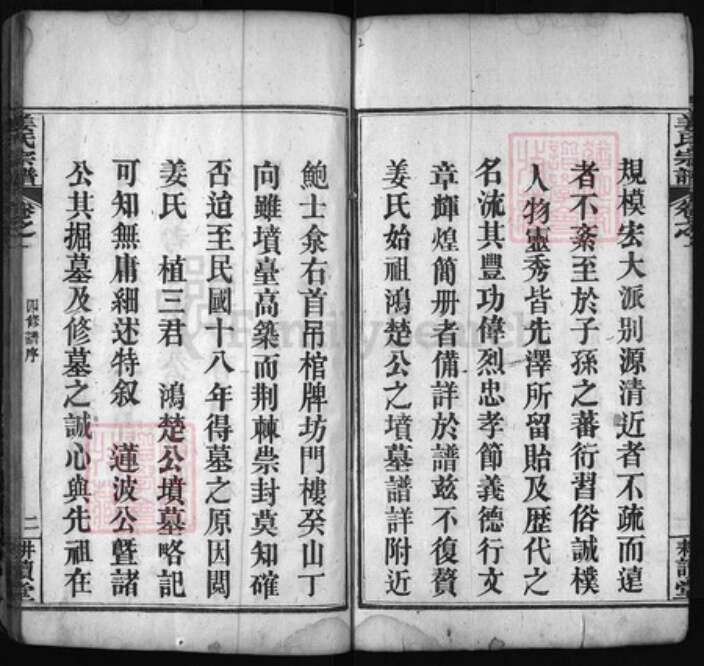 規模宏大派别源清近者不疏而遠
者不紊至於子孫之蕃衍習俗誠樸
人物靈秀皆先澤所留貽及歷代之
名流其豐功偉烈忠孝節義德行文
章輝煌簡册者備詳於譜兹不復贅
姜氏始祖鴻楚公之墳墓譜詳附近
姜氏宗譜
卷之一
耕讀堂
鮑士佘右首吊棺牌坊門樓癸山丁
向雖墳臺高築而荆棘祟封莫知確
否迨至民國十八年得墓之原因閲
姜氏 植三君 鴻楚公墳墓略記
可知無庸細述特叙 蓮波公暨諸
公其掘墓及修墓之誠心與先祖在
姜氏宗譜
卷之一
修譜序
二
耕讀堂
FamilySearch